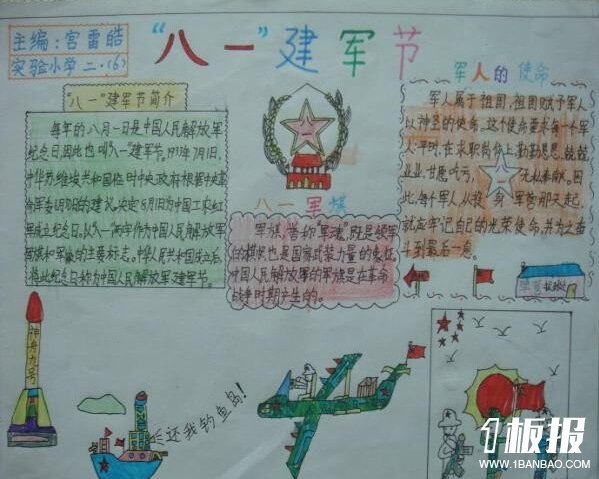 主编:宫雷皓
实验小学二·(6)
“八一”建军节
“八一”建军节简介
每年的八月一日是中国人民解放军
纪念日,因此也叫八一"建军节。1933年7月1日,
中华苏维埃共和国临时中央政府根据中央革
命军委6月30日的建议,决定8月1日为中国工农红
军成立纪念日。从八一两字作为中国人民解放军
军旗和军徽的主要标志。中华人民共和国成立后,
将此纪念日称为中国人民解放军建军节。
八一军旗
军旗,誉称"军魂",既是领军
的模棋也是国家武装力量的象征
中国人民解放军的军旗是在革命
战争时期产生的。
军人的使命
军人属于祖国,祖国赋予军人
以神圣的使命。这个使命要求每一个军
人平时,在求职岗位上勤勤恳恳,兢兢
业业,甘愿吃亏,无私奉献。因此,
每个军人从投身军营那天起,
就应牢记自己的光荣使命,并为之奋
斗到最后一息。
神舟九号
还我钓鱼岛!
1板报
WWW.1BANBAO.COM